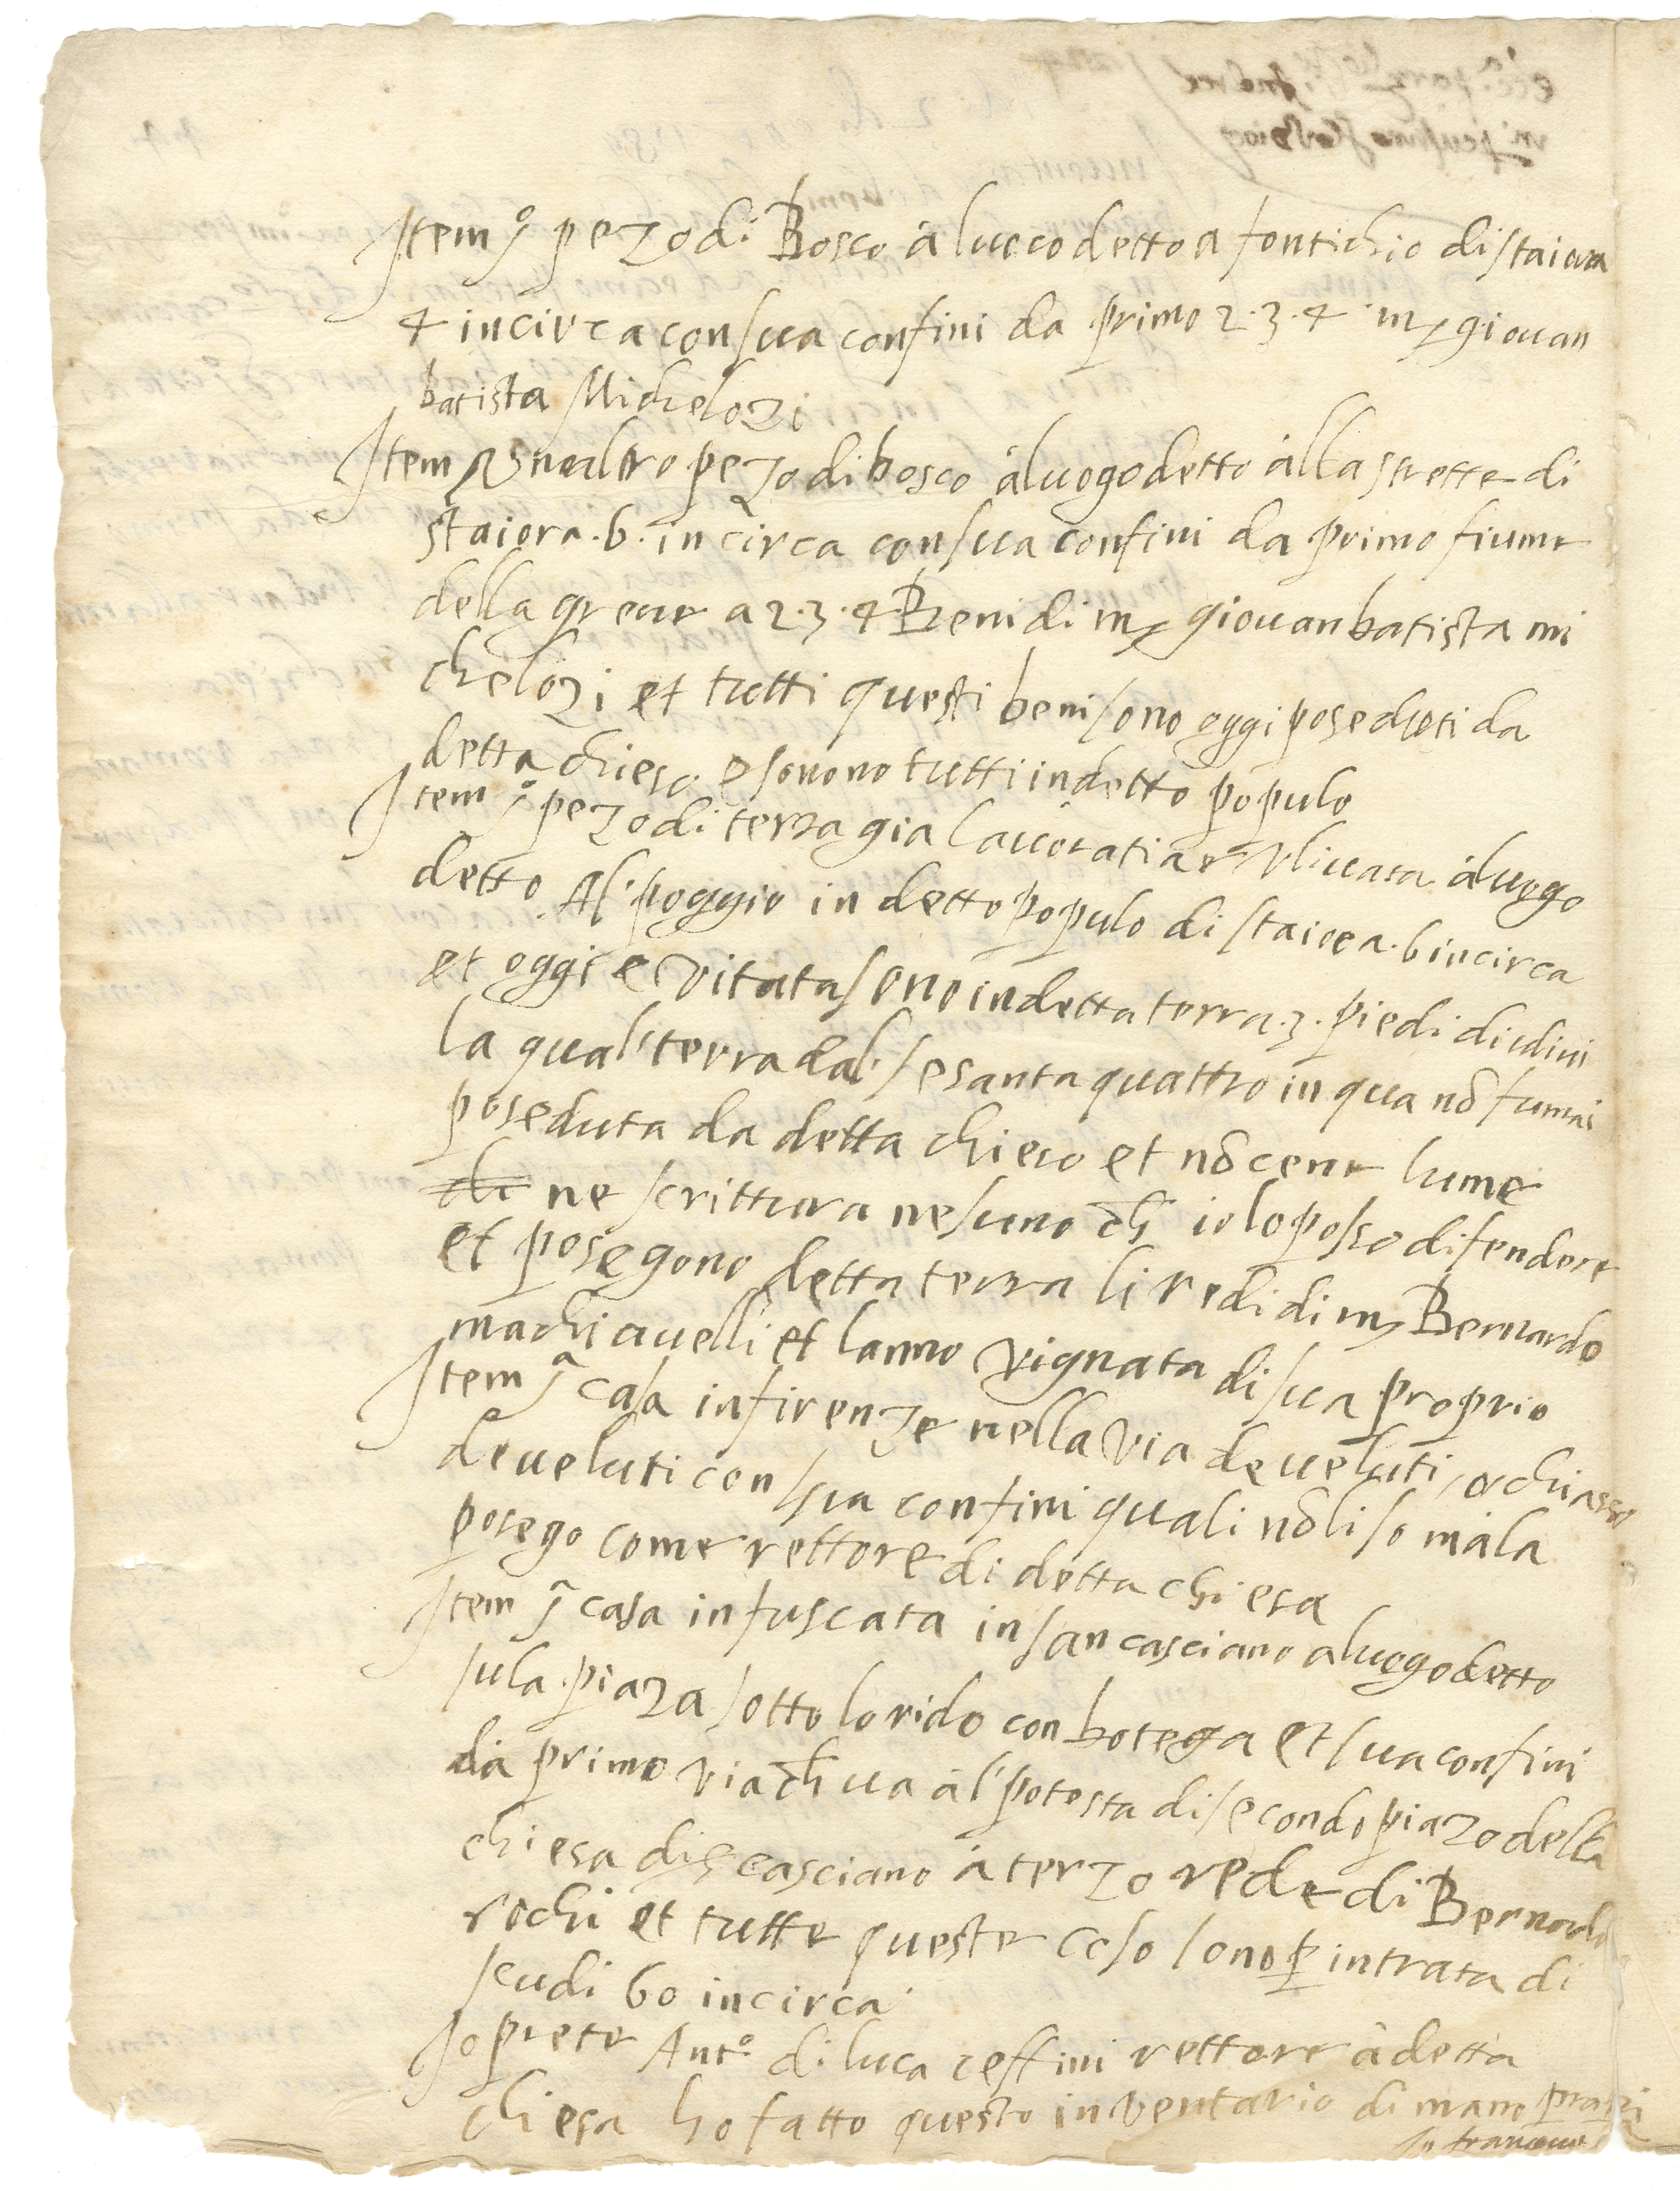 Item j° pezo di Bosco á lucco detto a fontichio di staiora
4 incirca con sua confini da primo 2. 3. 4 mr giouan
batista Michelozi
Item Vnaltro pezo di bosco á luogo detto álla strette di
staiora .6. in circa con sua confini da primo fiume
della greue a 2. 3. 4 Beni di mr giouanbatista mi
chelozi et tutti questi beni sono oggi poseduti da
detta chiesa e sonono tutti in detto populo
Item j° pezo di terra gia lauoratia e Vliuata á luogo
detto Al poggio in detto populo di staiora .6 incirca
et oggi e vitata sono in detta terra .3. piedi di ulivi
la qual terra dal sesanta quattro in qua nō fu mai
poseduta da detta chiesa et nō cene lume
che ne scrittura nesuno ch io lo possa difendere
et posegono detta terra li redi di mr Bernardo
machiauelli et lanno vignata di sua proprio
Item jª casa in firenze nella via de ueluti, o chiasso
de ueluti con sua confini quali nō li so má la
posego come rettore di detta chiesa
Item jª casa infuscata in san casciano a luogo detto
su la piaza sotto lorido con botega et sua confini
da primo via ch ua ál potesta di secondo piaza della
chiesa di s casciano á terzo rede di Bernardo
rochi et tutte queste cose sono p intrata di
scudi 60 incirca
Io prete Antº di luca ceffini rettore á detta
chiesa ho fatto questo inventario di mano